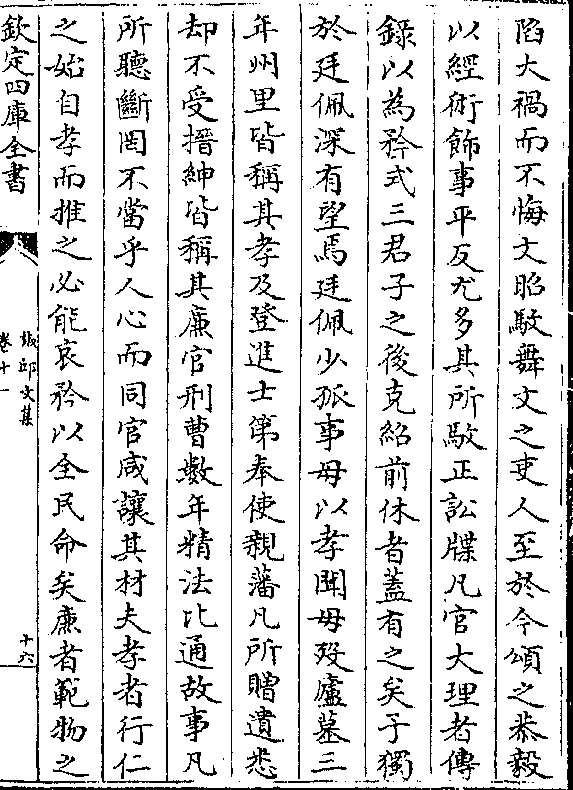 陷大禍而不悔文昭駮舞文之吏人至於今頌之恭毅
以經術飾事平反尤多其所駮正訟牒凡官大理者傳
錄以為矜式三君子之後克紹前休者蓋有之矣予獨
於廷佩深有望焉廷佩少孤事母以孝聞母歿廬墓三
年州里皆稱其孝及登進士第奉使親藩凡所贈遺悉
却不受搢紳皆稱其廉官刑曹數年精法比通故事凡
所聽斷罔不當乎人心而同官咸讓其材夫孝者行仁
之始自孝而推之必能哀矜以全民命矣廉者範物之
欽定四庫全書
邱文集
卷十一
十六